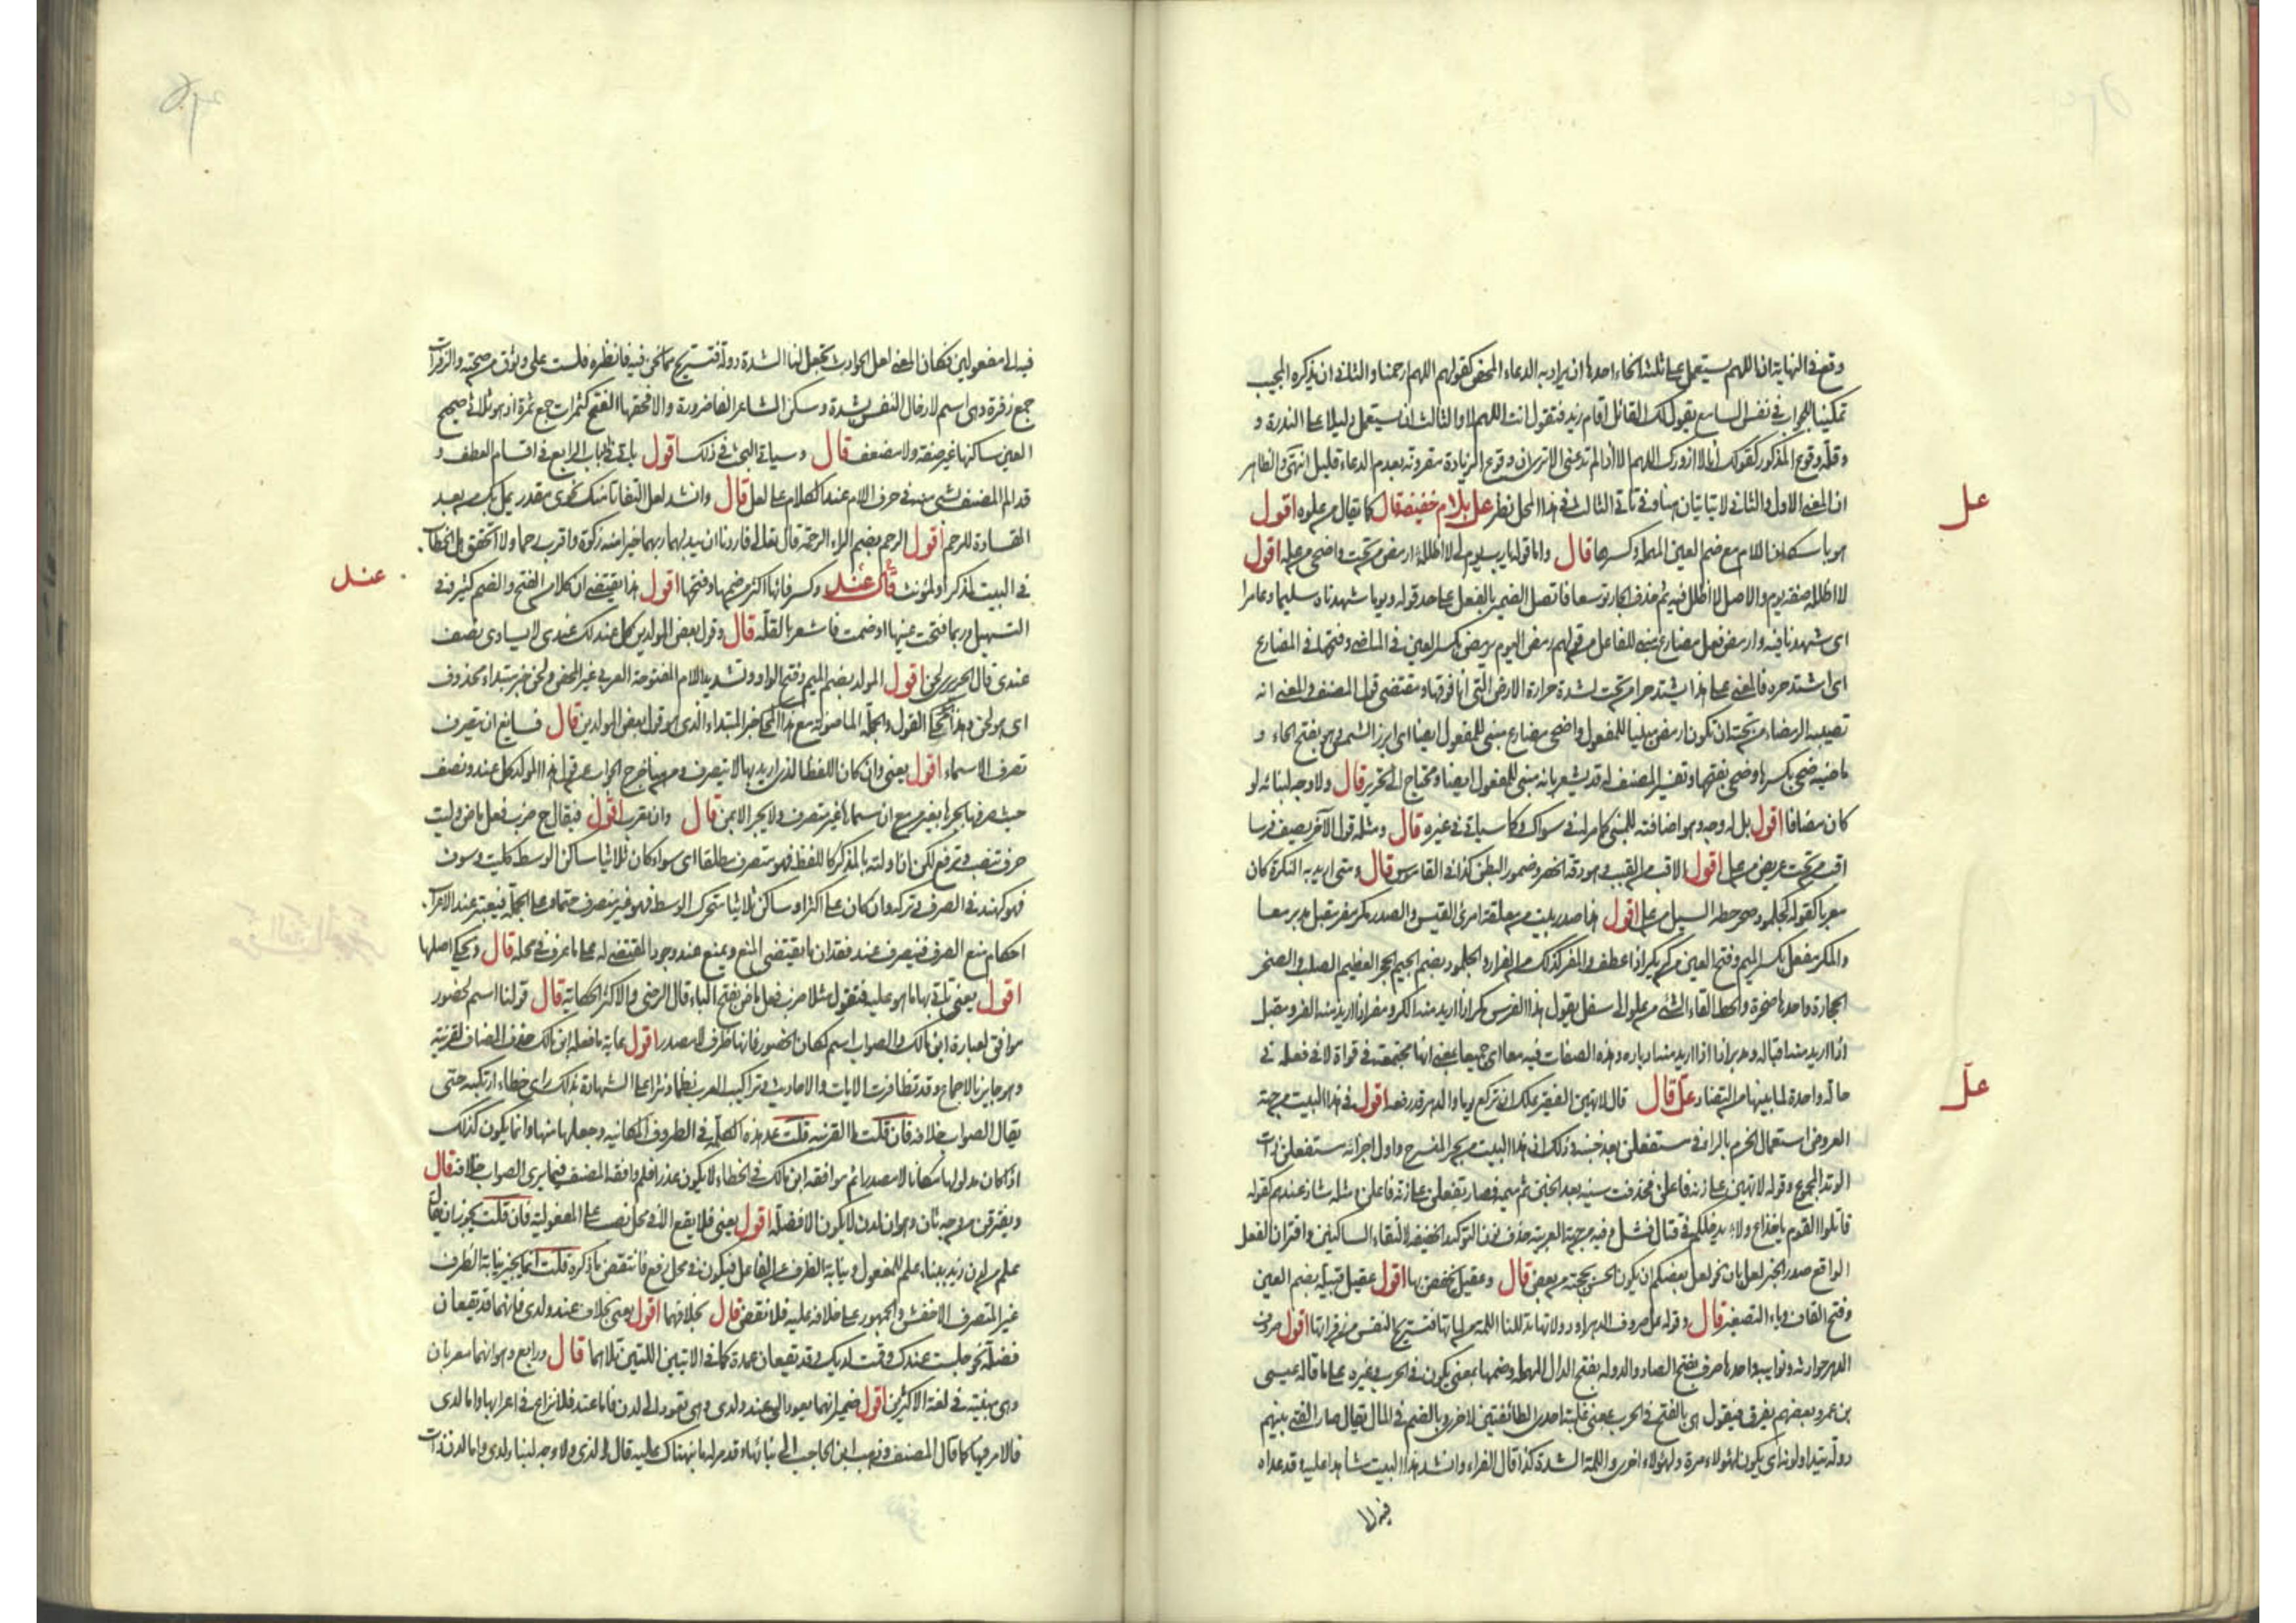 وقع في النهاية ان اللهم يستعمل على ثلثة انحاء احدها ان يراد به الدعاء المحض كقولهم اللهم ارحمنا والثاني ان يذكره المجيب
تمكينا للجواب في نفس السامع يقول لك القائل اقام زيد فتقول انت اللهم لا والثالث ان يستعمل دليلا على الندرة و
وقلة وقوع المذكور كقولك انا لا ازورك اللهم الا اذا لم تدعني الا ترى ان وقوع الزيادة مقرونة بعدم الدعاء قليل انتهى والظاهر
ان المعنى الاول والثاني لا يتاتيان هنا وفي تاتي الثالث في هذا المحل نظر عل بلام خفيفة قال كما يقال من علوه اقول
هو باسكان اللام مع ضم العين المهملة وكسرها قال واما قوله يا رب يوم لي لا اظلله ارمض من تحت واضحى من عله اقول
لا اظلله صفة يوم والاصل لا اظلل فيه ثم حذف الجار توسعا فاتصل الضمير بالفعل على حد قوله ويوما شهدناه سليما وعامرا
اي شهدنا فيه وارمض فعل مضارع مبني للفاعل من قولهم رمض اليوم يرمض بكسر العين في الماضي وفتحها في المضارع
اي اشتد حره فالمعنى على هذا يشتد حرا من تحت لشدة حرارة الارض التي انا فوقها ومقتضى قول المصنف والمعنى انه
تصيبه الرمضاء من تحته ان يكون ارمض مبنيا للمفعول واضحى مضارع مبني للمفعول ايضا اي ابرز الشمس هو بفتح الحاء و
ماضيه ضحي بكسرها وضحى بفتحها وتفسير المصنف له قد يشعر بانه مبني للمفعول ايضا ومحتاج الى تحرير قال ولا وجه لبنائه لو
كان مضافا اقول بل له وجه وهو اضافته للمبني كما مر له في سواك وكما سياتي في غيره قال ومثله قول الآخر يصف فرسا
اقب من تحت عريض من عل اقول الاقب من القبب وهو دقة الخصر وضمور البطن كذا في القاموس قال ومتى اريد به النكرة كان
معربا كقوله كجلمود صخر حطه السيل من عل اقول هذا صدر بيت من معلقة امرئ القيس والصدر مكر مفر مقبل مدبر معا
والمكر مفعل بكسر الميم وفتح العين من كر يكر اذا عطف والمفر كذلك من الفرار والجلمود بضم الجيم الحجر العظيم الصلب والصخر
الحجارة واحدها صخرة والحط القاء الشيء من علو الى سفل يقول هذا الفرس مكر اذا اريد منه الكر ومفر اذا اريد منه الفر ومقبل
اذا اريد منه اقباله ومدبر اذا اريد منه ادباره وهذه الصفات فيه معا اي جميعا يعني انها مجتمعة في قواه لا في فعله في
حالة واحدة لما بينها من التضاد علّ قال قال لا تهين الفقير علك ان تركع يوما والدهر قد رفعه اقول في هذا البيت من جهة
العروض استعمال الخرم بالراء في مستفعلن بعد خبنه وذلك ان هذا البيت من بحر المنسرح واول اجزائه مستفعلن ذات
الوتد المجموع وقوله لا تهين على زنة فاعلن فحذفت سينه بعد الخبن ثم ميمه فصار تفعلن على زنة فاعلن ومثله شاذ عندهم كقوله
قاتلوا القوم يا خذاع ولا يدخلكم في قتالهم فشل وفيه من جهة العربية حذف نون التوكيد الخفيفة لالتقاء الساكنين واقتران الفعل
الواقع صدر الخبر لعل بان نحو لعل بعضكم ان يكون الحن بحجته من بعض قال وعقيل تخفض بها اقول عقيل قبيلة بضم العين
وفتح القاف وياء التصغير قال وقوله عل صروف الدهر او دولاتها يدللننا اللمة من لماتها فتستريح النفس من زفراتها اقول صروف
الدهر حوادثه ونوايبه واحدها صرف بفتح الصاد والدولة بفتح الدال المهملة وضمها بمعنى يكون في الحرب وغيره على ما قاله عيسى
بن عمر وبعضهم يفرق فيقول هي بالفتح في الحرب بمعنى غلبة احدى الطائفتين لاخرى وبالضم في المال يقال صار الفيء بينهم
دولة يتداولونه اي يكون لهؤلاء مرة ولهؤلاء اخرى واللمة الشدة كذا قال الفراء وانشد هذا البيت شاهدا عليه وقد عداه
فيه الى
عل
علّ
فيه الى مفعولين فكان المعنى لعل الحوادث تجعل لنا الشدة دولة فتستريح مما نحن فيه فانظره فلست على وثوق من صحته والزفرات
جمع زفرة وهي اسم لادخال النفس بشدة وسكن الشاعر الفاء ضرورة والا فحقها الفتح كثمرات جمع ثمرة اذ هو ثلاثي صحيح
العين ساكنها غير صفة ولا مضعف قال وسياتي البحث في ذلك اقول ياتي في الباب الرابع في اقسام العطف و
قدم المصنف شي منه في حرف اللام عند الكلام على لعل قال وانشد لعل التفاتا منك نحوي مقدر يمل بك من بعد
القساوة للرحم اقول الرحم بضم الراء الرحمة قال تعالى فاردنا ان يبدلهما ربهما خيرا منه زكوة واقرب رحما ولا اتحقق هل الخطاب
في البيت لمذكر او لمؤنث قال عند وكسر فائها اكثر من ضمها وفتحها اقول هذا يقتضي ان كلا من الفتح والضم كثير وفي
التسهيل وربما فتحت عينها او ضمت فاشعر بالقلة قال وقول بعض المولدين كل عند لك عندي لا يساوي نصف
عندي قال الحريري لحن اقول المولد بضم الميم وفتح الواو وتشديد اللام المفتوحة العربي غير المحض ولحن خبر مبتداء محذوف
اي هو لحن وهذا محكي القول والجملة الماضوية مع هذا المحكي خبر المبتداء الذي هو قول بعض المولدين قال فسائغ ان يتصرف
تصرف الاسماء اقول يعني وان كان اللفظ الذي اريد بها لا يتصرف ومن هنا خرج الجواب عن قول هذا المولد كل عند ونصف
حيث صرفها بجرها بغير من مع ان مسماها غير متصرف ولا يجر الا بمن قال وان يعرب اقول فيقال ح ضرب فعل ماض وليت
حرف تنصب وترفع لكن اذا اولته بالمذكر كاللفظ فهو متصرف مطلقا اي سواء كان ثلاثيا ساكن الوسط كليت وسوف
فهو كهند في الصرف وتركه وان كان على اكثر او ساكن ثلاثيا متحرك الوسط فهو غير منصرف حتما وعلى الجملة فيعتبر عند الاعراب
احكام منع الصرف فيصرف عند فقدان ما يقتضي المنع ويمنع عند وجود المقتضي له على ما عرف في محله قال ويحكى اصلها
اقول يعني يؤتى بها ما هو عليه فتقول مثلا ضرب فعل ماض بفتح الباء قال الرضي والاكثر الحكاية قال قولنا اسم لحضور
موافق لعبارة ابن مالك والصواب اسم لمكان الحضور فانها ظرف لا مصدر اقول غاية ما فعله ابن مالك حذف المضاف لقرينة
وهو جايز بالاجماع وقد تظافرت الايات والاحاديث وتراكيب العرب نظما ونثرا على الشهادة بذلك فاي خطاء ارتكبه حتى
يقال الصواب خلافه فان قلت ما القرينة قلت عد هذه الكلمة في الظروف المكانية وجعلها منها وانما يكون كذلك
اذا كان مدلولها مكانا لا مصدرا ثم موافقة ابن مالك في الخطاء لا يكون عذرا فلم وافقه المصنف فيما يرى الصواب خلافه قال
ويفترقن من وجه ثان وهو ان لدن لا يكون الا فضلة اقول يعني فلا يقع الا في محل نصب على المفعولية فان قلت يجوز ان يقال
علم من لدن زيد ببناء علم للمفعول ونيابة الظرف عن الفاعل فيكون في محل رفع فانتقض ما ذكره قلت انما يجيز نيابة الظرف
غير المتصرف الاخفش والجمهور على خلافه عليه فلا نقض قال بخلافهما اقول يعني بخلاف عند ولدى فانهما قد يقعان
فضلة نحو جلست عندك وقت لديك وقد يقعان عمدة كما في الايتين اللتين تلاهما قال ورابع وهو انهما معربان
وهي مبنية في لغة الاكثرين اقول ضمير انهما يعود الى عند ولدى وهي يعود الى لدن فاما عند فلا نزاع في اعرابها واما لدى
فالامر فيها كما قال المصنف وذهب ابن الحاجب الى بنائها وقد مر له ما نبهناك عليه قال الرضي ولا وجه لبناء لدى واما لدن فذات
عند